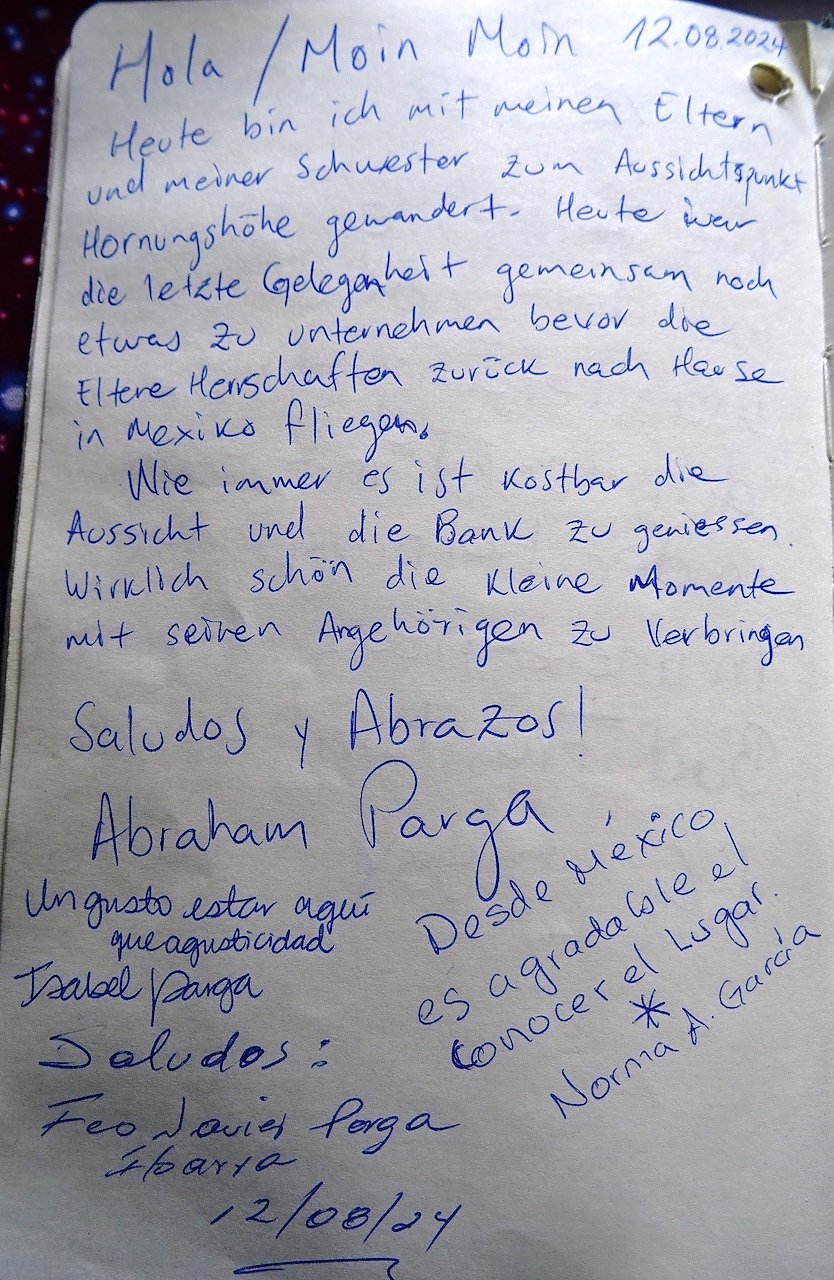 Hola / Moin Moin 12.08.2024
Heute bin ich mit meinen Eltern
und meiner Schwester zum Aussichtspunkt
Hornungshöhe gewandert. Heute war
die letzte Gelegenheit gemeinsam noch
etwas zu unternehmen bevor die
Eltere Herrschaften zurück nach Hause
in Mexiko fliegen.
Wie immer es ist kostbar die
Aussicht und die Bank zu geniessen.
Wirklich schön die kleine Momente
mit seinen Angehörigen zu verbringen
Saludos y Abrazos!
Abraham Parga
Un gusto estar aquí
que agusticidad
Isabel Parga
Desde México,
es agradable el
conocer el Lugar.
*
Norma A. García
Saludos:
Fco Javier Parga
Ibarra
12/08/24